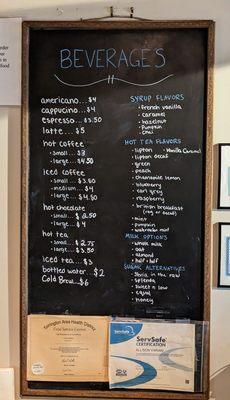 BEVERAGES
americano... $4
cappuccino... $4
espresso... $3.50
latte... $5
hot coffee
• small... $3
• large... $4.50
iced coffee
• small... $3.50
• medium... $4
• large... $4.50
hot chocolate
• small... $2.50
• large... $4
hot tea
• small... $2.75
• large... $3.50
iced tea... $3
bottled water... $2
Cold Brew... $6
SYRUP FLAVORS
• french vanilla
• caramel
• hazelnut
• Pumpkin
• chai
HOT TEA FLAVORS
• lipton • Vanilla Caramel
• lipton decaf
• green
• peach
• chamomile lemon
• blueberry
• earl grey
• raspberry
• british breakfast
(reg or decaf)
• mint
• pumpkin
MILK OPTIONS
• whole milk
• oat
• almond
• half + half
SUGAR ALTERNATIVES
• Stevia in the raw
• splenda
• sweet n low
• equal
• honey
Torrington Area Health District
ServSafe
ServSafe
CERTIFICATION
ALLISON